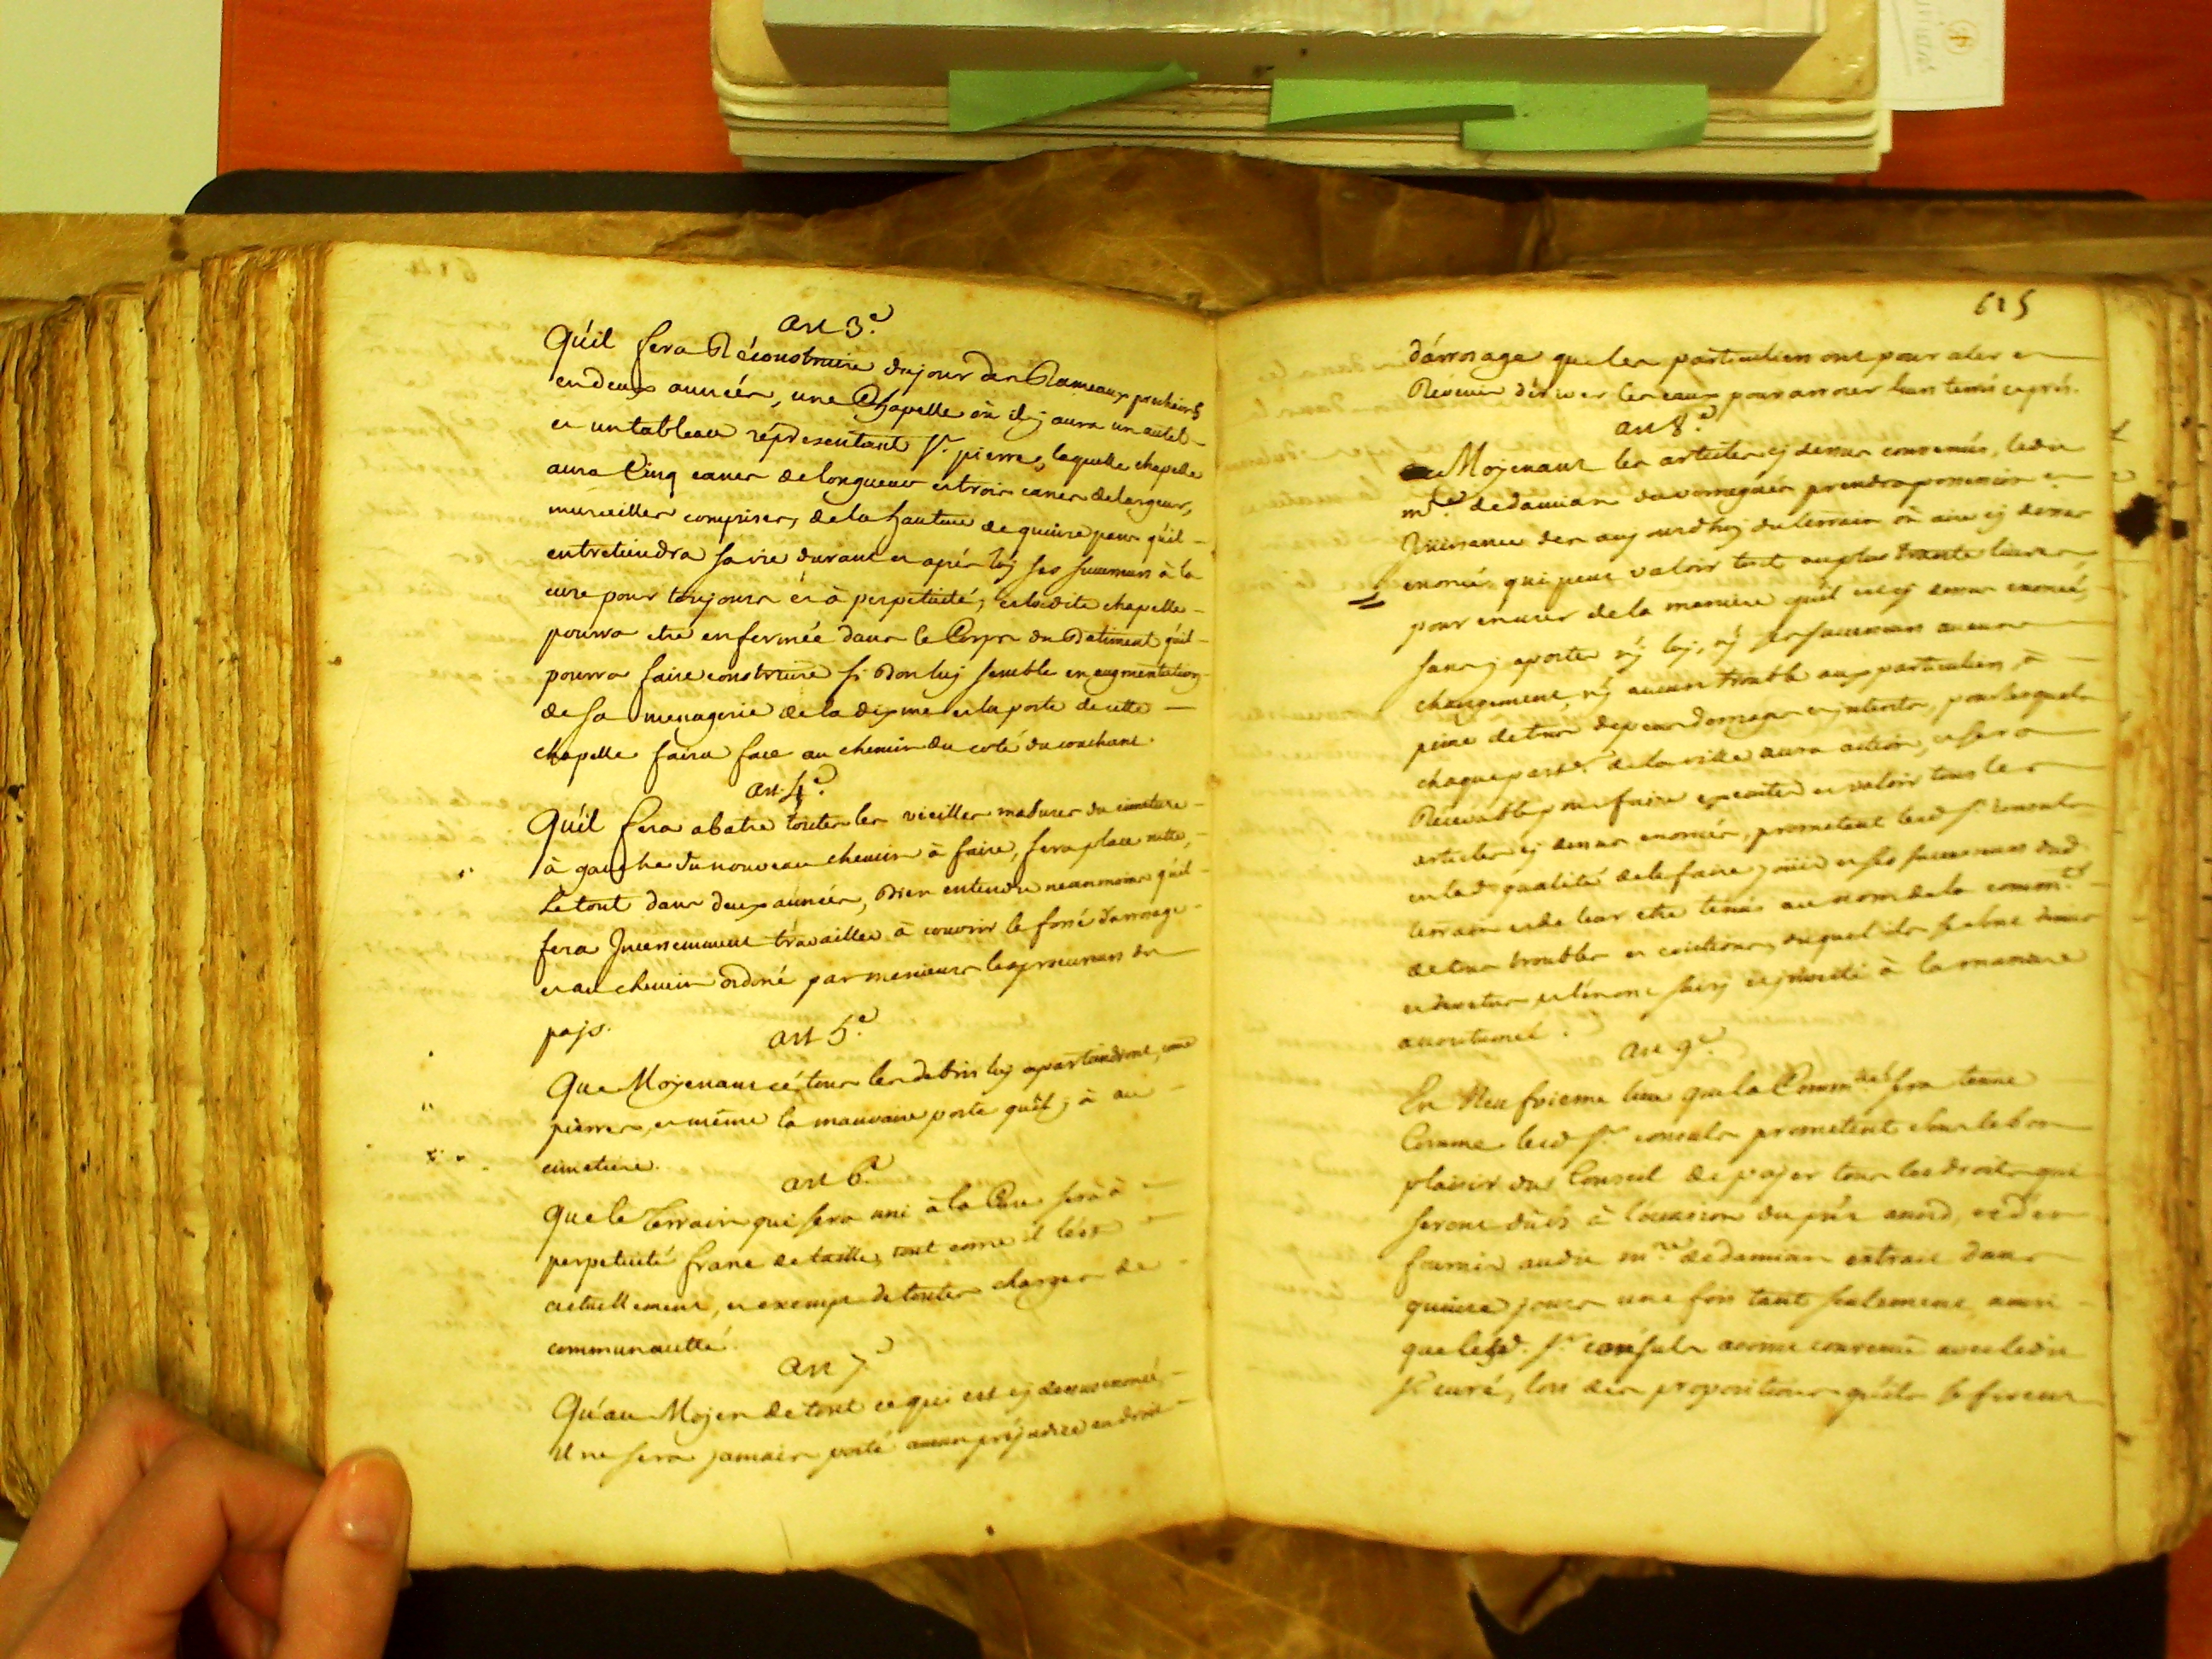 Art 3.e
Qu'il fera Réconstruire dujour des Rameaux prochains
en deux années, une Chapelle où il y aura un autel
et un tableau répresentant St. pierre, laquelle chapelle
aura Cinq canes de longueur et trois canes de largeur,
murailles comprises, de la hauteur de quinze pans qu'il
entretiendra sa vie durant et aprés luy ses successeurs à la
cure pour toujours et à perpetuité, et ladite chapelle
pourra etre enfermée dans le Corps du Batiment qu'il
pourra faire construire si Bon luy semble en augmentation
de sa menagerie de la dixme et la porte de cette
chapelle faira face au chemin du coté du couchant.
Art. 4.e
Qu'il fera abatre toutes les vieilles masures du cimetiere
à gauche du nouveau chemin à faire, fera place nette,
Le tout dans deux années, Bien entendu neanmoins qu'il
fera Incessamment travailler à couvrir le fossé d'arrosage
et au chemin ordoné par messieurs les procureurs du
pays.
Art 5.e
Que Moyenant cé tous les debris luy apartiendront, come
pierres, et même la mauvaise porte qu'il y à au
cimetiere.
Art 6.e
Que le Terrain qui sera uni à la Cure sera à
perpetuité franc de taille, tout come il l'est
actuellement, et exempt de toutes charges de
communautté.
Art 7.e
Qu'au Moyen de tout ce qui est cy dessus enoncé,
il ne sera jamais porté aucun préjudice au droit
625
d'arrosage que les particuliers ont pour aler et
Revenir dériver les eaux pour arroser leurs terres et prés.
Art 8.e
Moyenant les articles cy dessus convenus, ledit
mre de damian du vernegues prendra possession et
Jouissance des aujourdhuy du terrain où aire cy dessus
enoncé, qui peut valoir tout au plus trante livres
pour en user de la maniere qu'il est cy dessus enoncé,
sans y aporter ny luy, ny ses successeurs aucun
changement, ny aucun trouble aux particuliers, à
peine de tous depens domages et interets, pour lesquels
chaque part.er de la ville aura action, et sera
Recevable pour faire executer et valoir tous les
articles cy dessus enoncés, prometent lesd srs consuls
en lad qualité de le faire jouir et ses successeurs dud
terrain et de leur etre tenus au nom de la commté
de tous troubles et evictions, duquel ils se sont demis
et devetus et l'en ont saisy et investi à la maniere
acoutumée.
Art 9.e
En Neufvieme lieu que la Commté sera tenue
Comme lesd srs consuls prometent sous le bon
plaisir du Conseil de payer tous les droits qui
seront dubs à l'occasion du prés acord, et d'en
fournir audit mre de damian extrait dans
quinze jours une fois tant seulement, ainsi
que lesd. srs consuls avoint convenu avec ledit
sr curé, lors des propositions qu'ils se firent